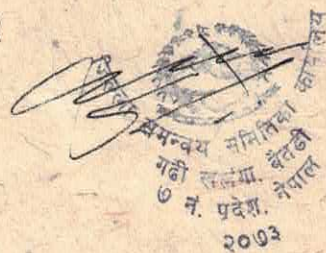 समन्वय समितिको कार्यालय
गढी सलंगा, बैतडी
७ नं. प्रदेश, नेपाल
२०७३